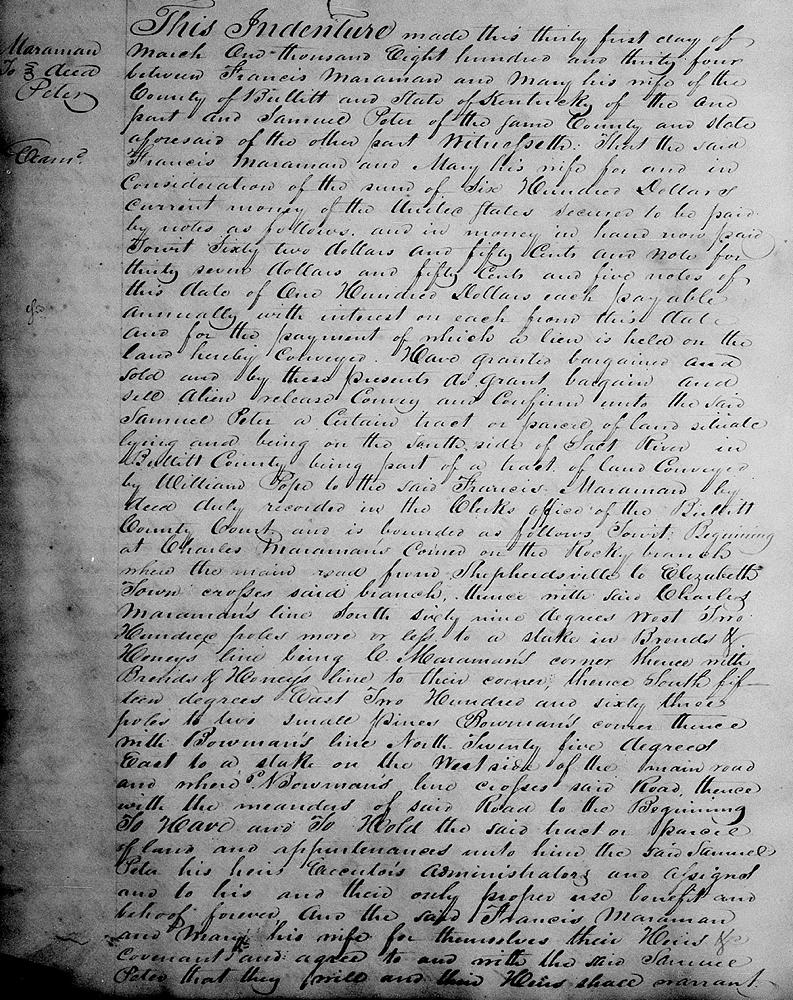 Maraman
To deed
Peter
Exam.d
This Indenture made this thirty first day of
March One thousand Eight hundred and thirty four
between Francis Maraman and Mary his wife of the
County of Bullitt and State of Kentucky of the one
part and Samuel Peter of the same County and state
aforesaid of the other part Witnesseth: That the said
Francis Maraman and Mary his wife for and in
Consideration of the sum of Six Hundred Dollars
current money of the United States secured to be paid
by notes as follows. and in money in hand now paid
Towit Sixty two dollars and fifty Cents and note for
thirty seven dollars and fifty Cents and five notes of
this date of One Hundred Dollars each payable
annually with interest on each from this date
and for the payment of which a lien is held on the
land hereby Conveyed. Have granted bargained and
sold and by these presents do grant bargain and
sell Alien release Convey and Confirm unto the said
Samuel Peter a Certain tract or parcel of land situate
lying and being on the South side of Salt River in
Bullitt County being part of a tract of land Conveyed
by William Pope to the said Francis Maraman by
deed duly recorded in the Clerks office of the Bullitt
County Court and is bounded as follows Towit: Beginning
at Charles Maraman's Corner on the Rocky branch
where the main road from Shepherdsville to Elizabeth
Town crosses said branch, thence with said Charles
Maraman's line South sixty nine degrees West Two
Hundred poles more or less to a stake in Brends &
Honey's line being C. Maraman's corner thence with
Brends & Honey's line to their corner, thence South fif-
teen degrees East Two Hundred and sixty three
poles to two small pines Bowman's corner thence
with Bowman's line North Twenty five degrees
East to a stake on the West side of the main road
and where Bowman's line crosses said Road, thence
with the meanders of said Road to the Beginning
To Have and To Hold the said tract or parcel
of land and appurtenances unto him the said Samuel
Peter his heirs Executors Administrators and assigns
and to his and their only proper use benefit and
behoof forever, And the said Francis Maraman
and Mary his wife for themselves their Heirs &c
Covenant and agree to and with the said Samuel
Peter that they will and their Heirs shall warrant